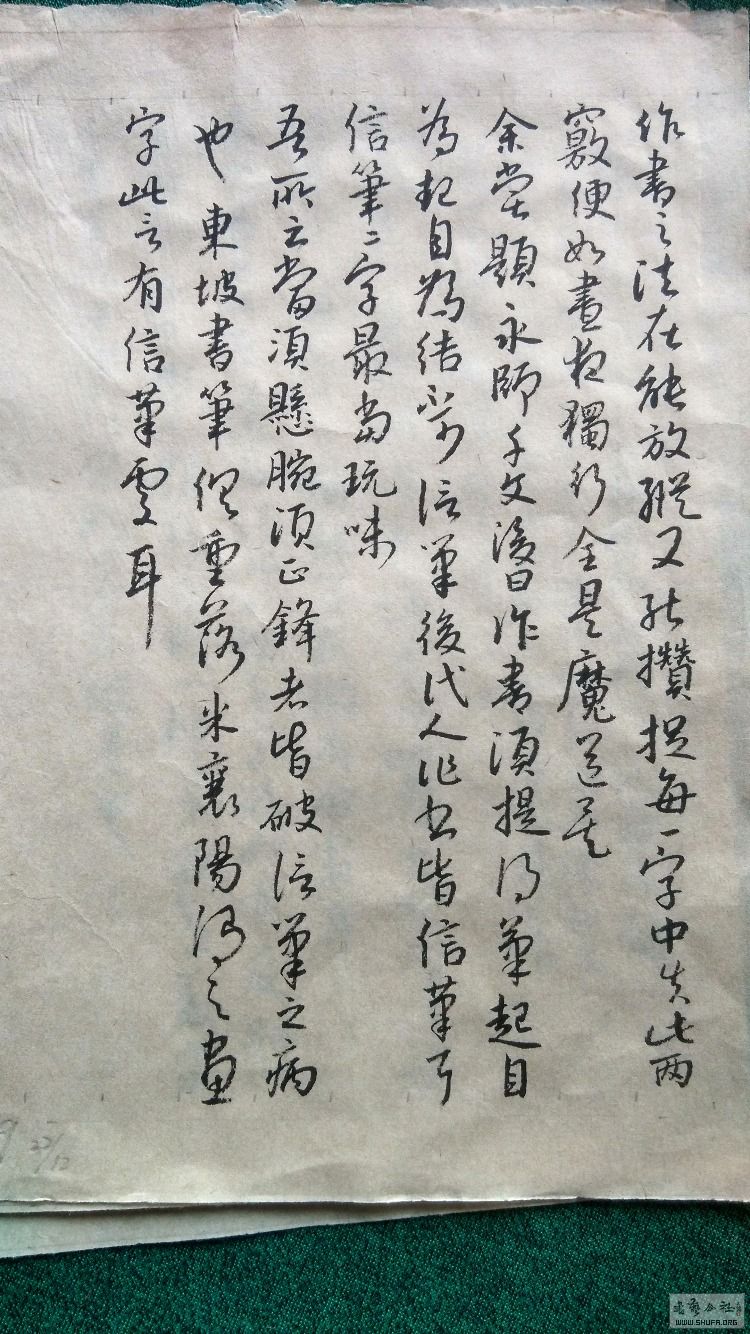 作書之法在能放縱又能攢捉每一字中失此兩
竅便如晝夜獨行全是魔道矣
余嘗題永師千文後曰作書須提得筆起自
為起自為結不可信筆後代人作書皆信筆耳
信筆二字最當玩味
吾所云當須懸腕須正鋒者皆破信筆之病
也東坡書筆俱重落米襄陽謂之畫
字此言有信筆處耳
22/12
書藝公社
WWW.SHUFA.ORG